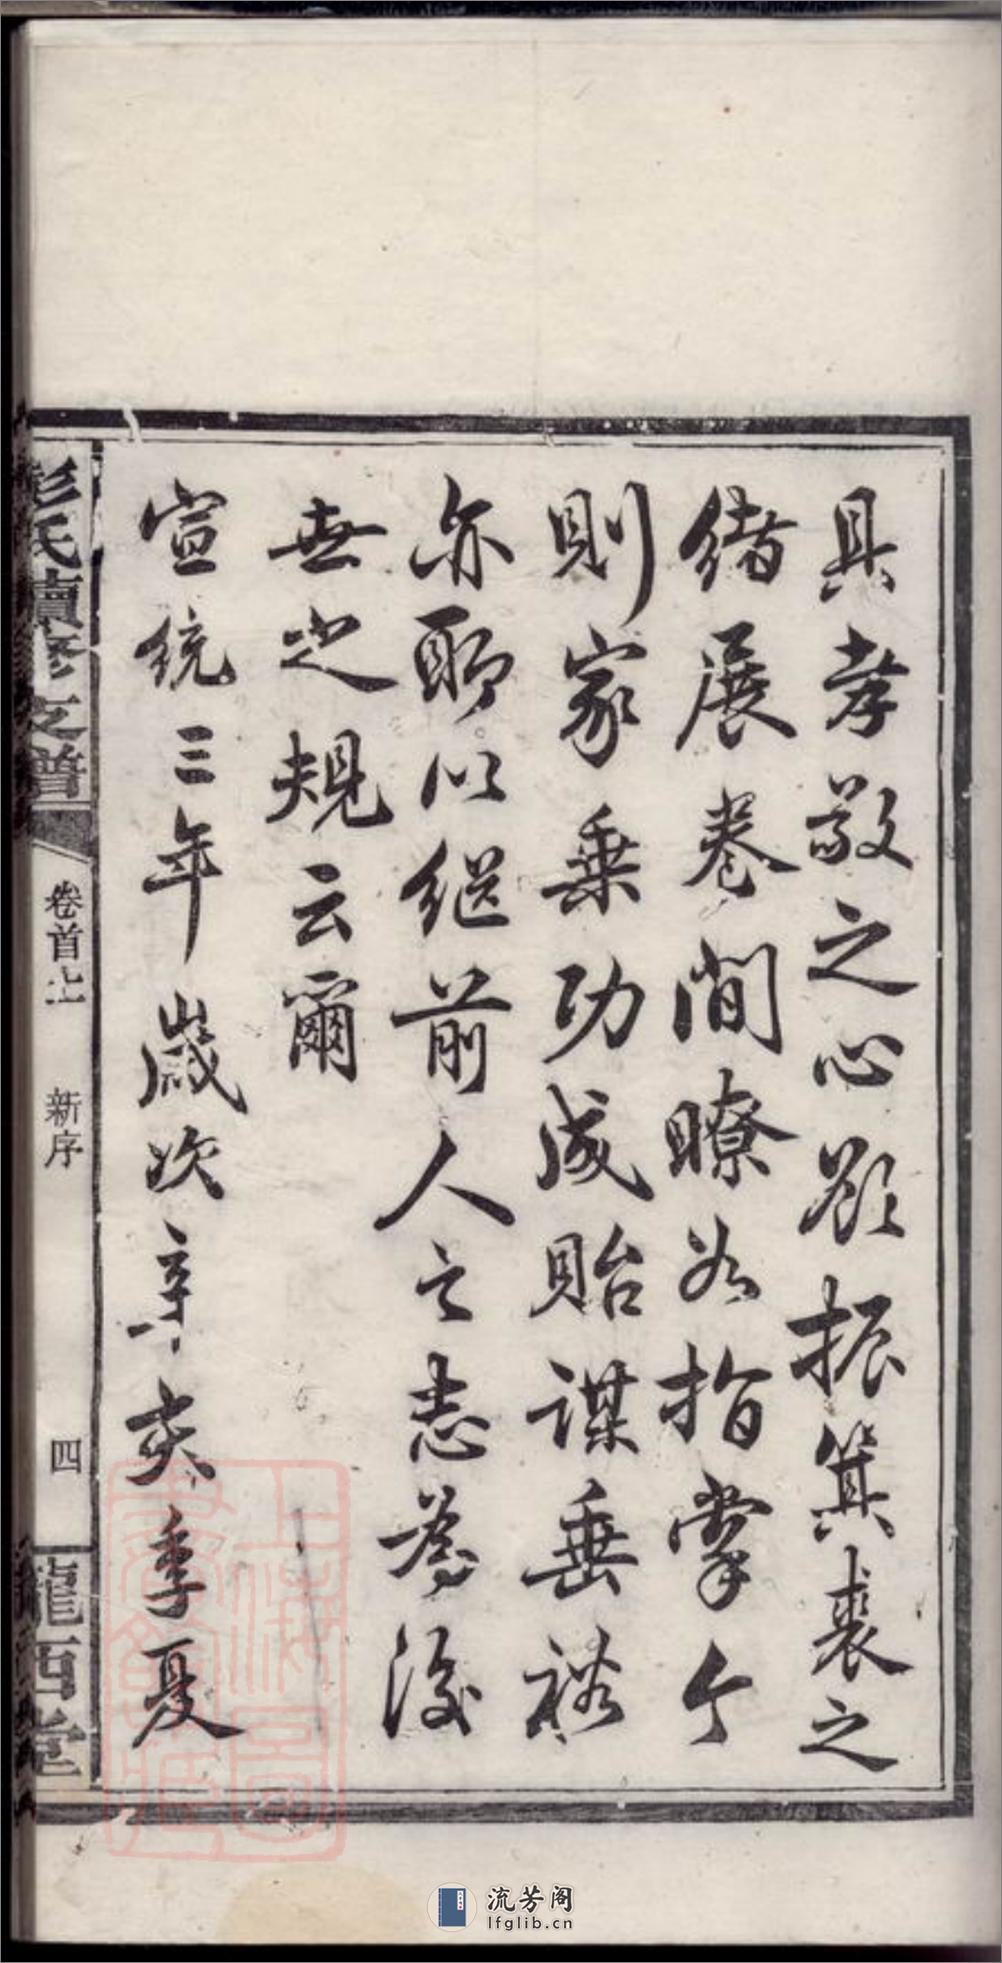 具孝敬之心欲振箕裘之
緒展卷間瞭若指掌今
則家乗功成貽謀垂裕
亦聊以継前人之志為後
世之規云爾
宣統三年歲次辛亥季夏
彭氏續修支譜
卷首上 新序 四
隴西堂
上海圖書館藏
流芳阁
lfglib.cn